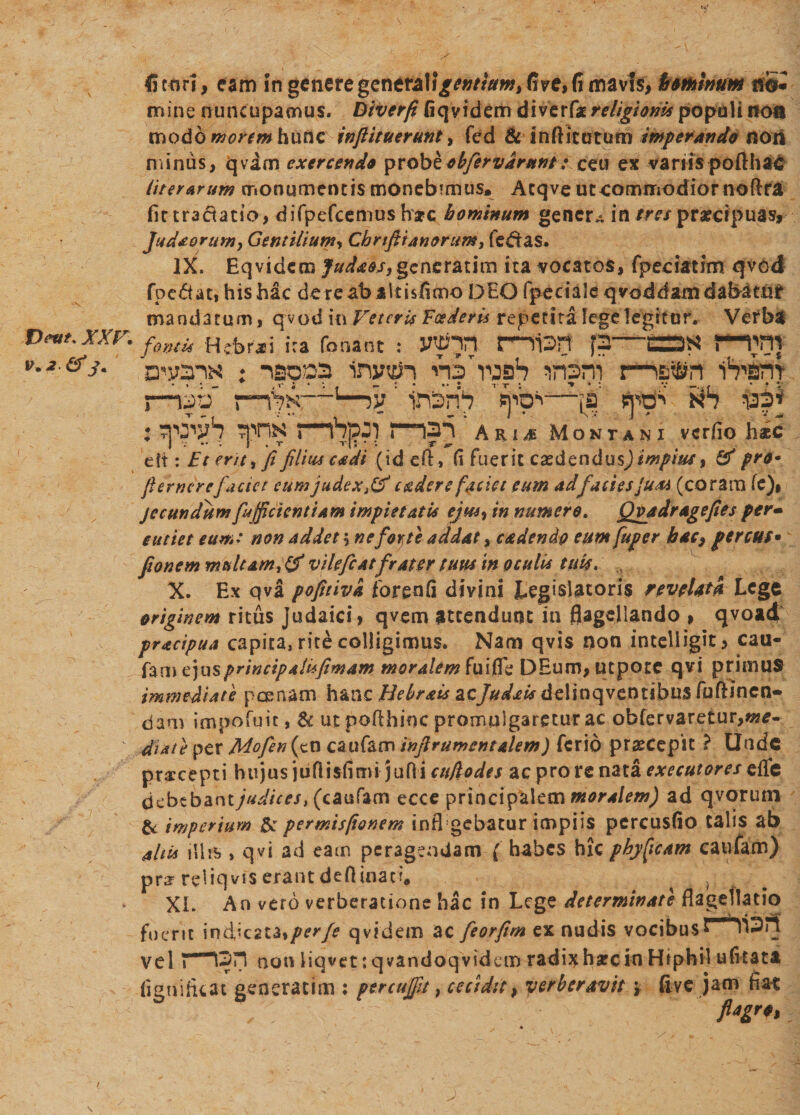 ſitori, eam in genere generali gentium, ſive, ſi mavis, hominum no-
mine nuncupamus. Diverſi ſiqvidem diverſæ religionis populi non
modò morem hunc inſtituerunt, ſed & inſtitutum imperando non
minùs, qvàm exercendo probè obſervârunt: ceu ex variis poſthac
literarum monumentis monebimus. Atqve ut commodior noſtra
ſit tractatio, diſpeſcemus hæc hominum genera in tres præcipuas,
Judæorum, Gentilium, Chriſtianorum, ſectas.
IX. Eqvidem Judæos, generatim ita vocatos, ſpeciatim qvod
ſpectat, his hâc de re ab altisſimo DEO ſpeciale qvoddam dabatur
mandatum, qvod in Veteris Fœderis repetitâ lege legitur. Verba
Deut. XXV.
v. 2. & 3.
fontis Hebræi ita ſonant : והיה אם־בן הכות הרשע
והפילו השפט והכהו לפניו כדי רשעתו במספר : ארבעים
יכנו לא יסיף פן־יסיף להכתו על־אלה מכה
רבה ונקלה אחיך לעיניך : ARIÆ MONTANI verſio hæc
eſt: Et erit, ſi filius cædi (id eſt, ſi fuerit cædendus) impius, & pro-
ſternere faciet eum judex, & cædere faciet eum ad facies ſuas (coram ſe),
ſecundùm ſufficientiam impietatis ejus, in numero. Qvadrageſies per-
cutiet eum: non addet; ne forte addat, cædendo eum ſuper hac, percus-
ſionem multam, & vileſcat frater tuus in oculis tuis.
X. Ex qvâ poſitivâ forenſi divini Legislatoris revelatâ Lege
originem ritûs Judaici, qvem attendunt in flagellando, qvoad
præcipua capita, ritè colligimus. Nam qvis non intelligit, cau-
ſam ejus principalisſimam moralem fuiſſe DEum, utpote qvi primus
immediatè pœnam hanc Hebræis ac Judæis delinqventibus ſuſtinen-
dam impoſuit, & ut poſthinc promulgaretur ac obſervaretur, me-
diatè per Moſen (en cauſam inſtrumentalem) ſeriò præcepit? Unde
præcepti hujus juſtisſimi juſti cuſtodes ac pro re natâ executores eſſe
debebant judices, (cauſam ecce principalem moralem) ad qvorum
& imperium & permisſionem infligebatur impiis percusſio talis ab
aliis illis, qvi ad eam peragendam (habes hîc phyſicam cauſam)
præ reliqvis erant deſtinati.
XI. An verò verberatione hâc in Lege determinatè flagellatio
fuerit indicata, per ſe qvidem ac ſeorſim ex nudis vocibus הכות
vel הכה non liqvet: qvandoqvidem radix hæc in Hiphil uſitata
ſignificat generatim: percuſſit, cecidit, verberavit; ſive jam fiat
flagro,